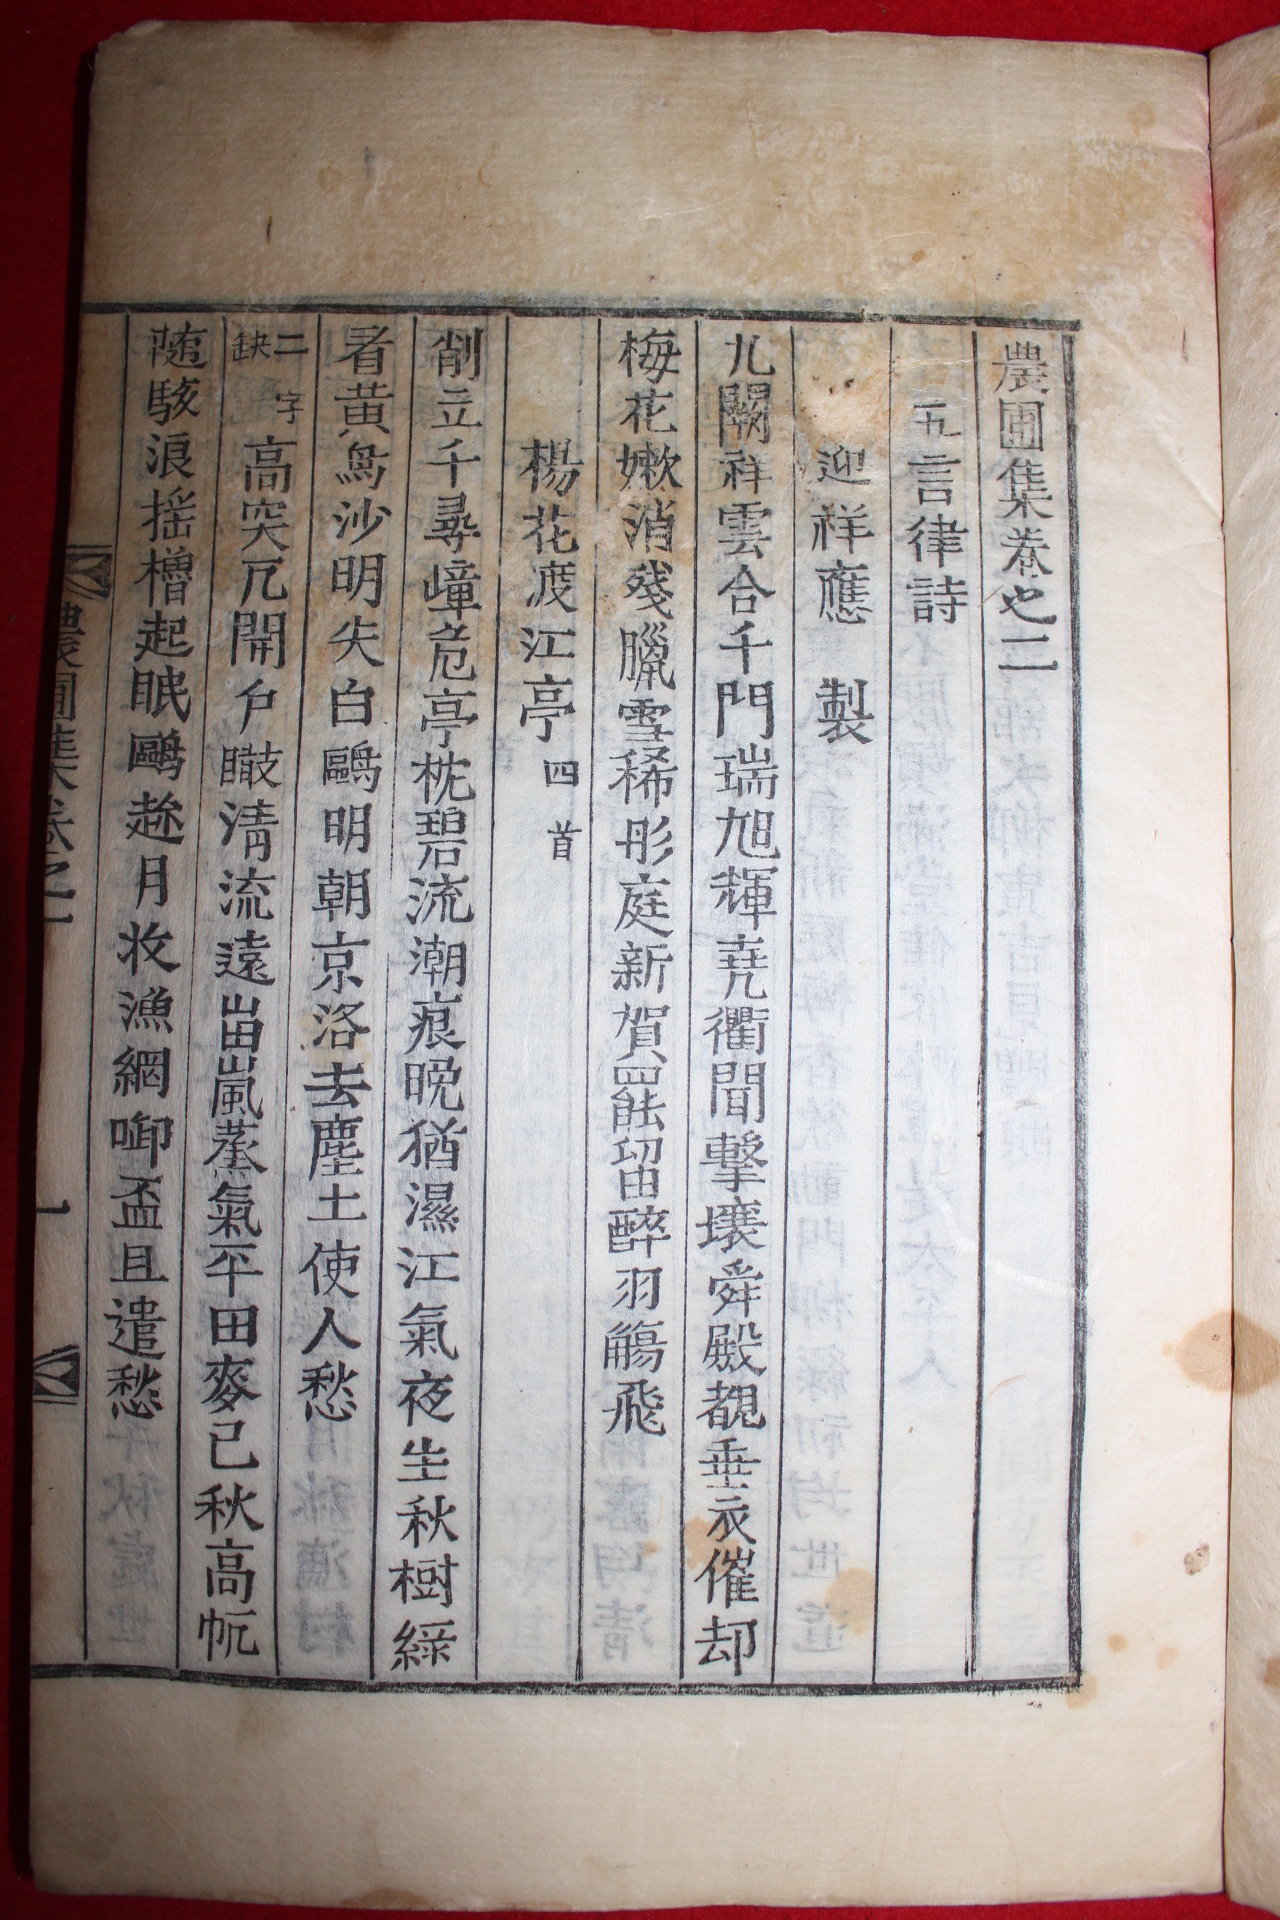 農圃集卷之二
五言律詩
迎祥應 製
九闕祥雲合千門瑞旭輝堯衢聞擊壤舜殿覩垂衣催却
梅花嫩消殘臘雪稀彤庭新賀罷留醉羽觴飛
楊花渡江亭 四首
削立千尋嶂危亭枕碧流潮痕晚猶濕江氣夜生秋樹綠
看黃鳥沙明失白鷗明朝京洛去塵土使人愁
二字缺高突兀開戶瞰清流遠峀嵐蒸氣平田麥已秋高帆
隨駭浪搖櫓起眠鷗趂月收漁網啣盃且遣愁
農圃集卷之二 一